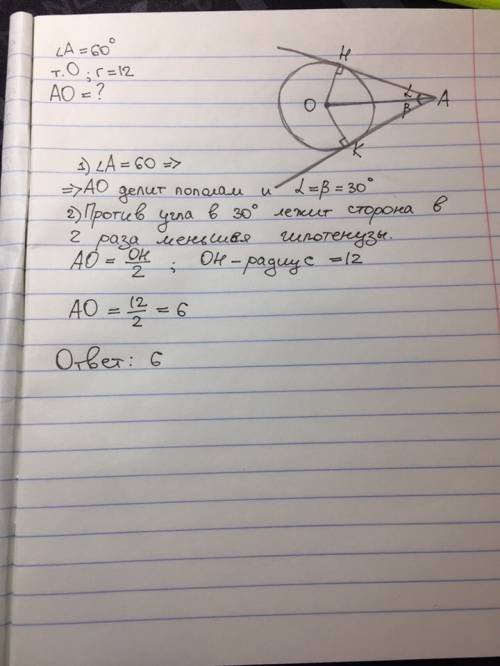 ∠A = 60°
т.O ; r = 12
AO = ?
H
O
α
A
β
K
1) ∠A = 60 =>
=> AO делит пополам и α = β = 30°
2) Против угла в 30° лежит сторона в
2 раза меньшая гипотенузы.
AO = OH/2 ; OH – радиус = 12
AO = 12/2 = 6
Ответ: 6